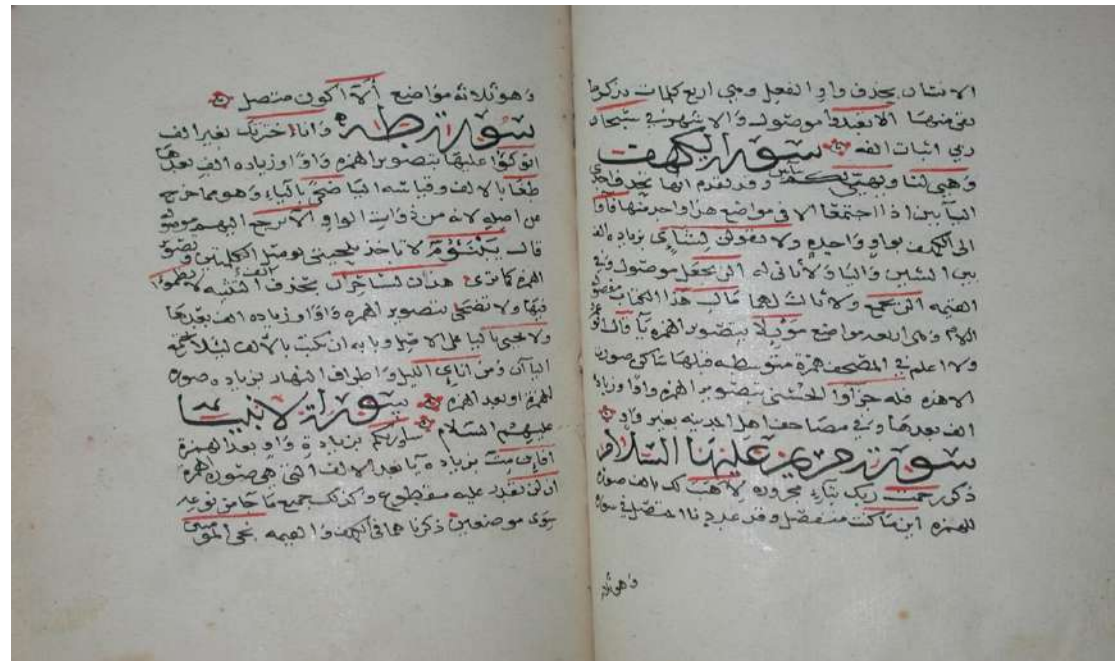 الانسان بحذف واو الفعل وهي اربع كلمات
بقى منها الا بعدها موصول ولا تشهون في سبحان
ربي اثبات الفه سورة الكهف
وهيى لنا ويهيى لكم وقد تقدم انها بحذف احدى
اليايين اذا اجتمعا الا في مواضع هذا واحد منها فاوا
الى الكهف بواو واحدة ولا تقولن لشاى بزيادة الف
بين الشين والياء ولا ثانى له الن نجعل موصول وفى
القيمه الن نجمع ولا ثالث لهما مال هذا الكتاب مفصول
اللام وهى اربعة مواضع موئلا بتصوير الهمزة يا قالت
ولا اعلم فى المصحف همزة متوسطة قبلها ساكن صورت
الا هذه فله جزاوا الحسنى بتصوير الهمزة واوا وزيادة
الف بعدها وفى مصاحف اهل المدينه بغير واو
سورة مريم عليها السلام
ذكر رحمت ربك بتاء مجرورة لاهب لك بالف صورة
للهمزه اين ما كنت منفصل وقد عددنا المتصل فى سورة
وهو ثلاثة
وهو ثلاثه مواضع ألا اكون متصل
سورة طه وانا اخترتك بغير الف
اتوكؤا عليها بتصوير الهمزه واوا وزياده الف بعدها
طغا بالالف وقياسه اليا ضحى بالياء وهو مما خرج
عن اصله لانه من ذوات الواو الا يرجع اليهم موصول
قال يبنؤم لا تاخذ بلحيتى بوصل الكلمتين وتصوير
الهمزه كما ترى هذان لسحران بحذف الف التثنيه لا تظمؤا
فيها ولا تضحى بتصوير الهمزه واوا وزياده الف بعدها
ولا يحيى باليا على الاصل وبابه ان كتب بالالف ليلا تجتمع
اليا آن ومن اناءى اليل واطراف النهار بزياده صورة
للهمزه او بعد الهمزه سورة الانبيا
عليهم السلام سأوريكم بزيادة واو بعد الهمزة
افإين مت بزياده يا بعد الالف التى هى صورة الهمزه
ان لن نقدر عليه مقطوع وكذلك جميع ما جا من نوعه
سوى موضعين ذكرنا هما فى الكهف والقيمه نجى المؤمنين